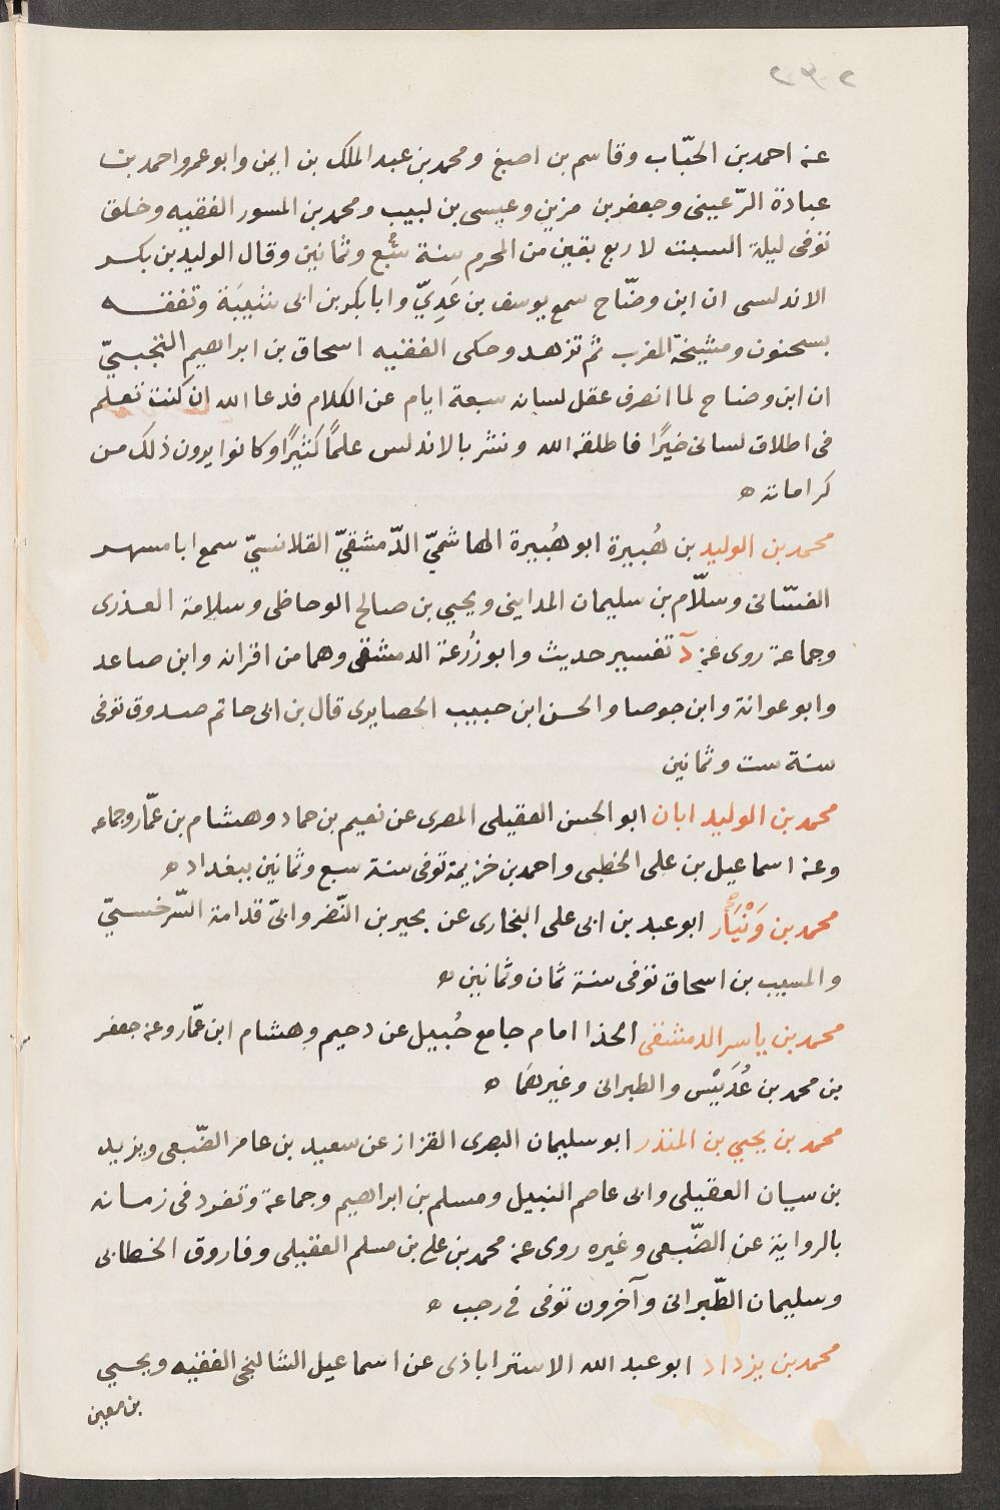 ٢٣٢
عنه احمد بن الحبّاب وقاسم بن اصبغ ومحمد بن عبد الملك بن ايمن وابو عمرو احمد بن
عبادة الرّعينى وجعفر بن مزين وعيسى بن لبيب ومحمد بن المسور الفقيه وخلق
توفى ليلة السبت لاربع بقين من المحرم سنة سبع وثمانين وقال الوليد بن بكر
الاندلسى ان ابن وضّاح سمع يوسف بن عَدِيّ وابا بكر بن ابى شَيبَة وتفقه
بسحنون ومشيخة المغرب ثم تزهد وحكى الفقيه اسحاق بن ابراهيم التجيبيّ
ان ابن وضاح لما انصرف عقل لسانه سبعة ايام عن الكلام فدعا الله ان كنت تعلم
فى اطلاق لسانى خيرًا فاطلقه الله ونشر بالاندلس علمًا كثيرًا وكانوا يرون ذلك من
كراماته ه
محمد بن الوليد بن هُبيرة ابو هُبيرة الهاشميّ الدّمشقيّ القلانسيّ سمع ابا مسهر
الغسّانى وسلّام بن سليمان المداينى ويحيى بن صالح الوحاظى وسلامة العذرى
وجماعة روى عنه د تفسير حديث وابو زُرعة الدمشقى وهما من اقرانه وابن صاعد
وابو عوانة وابن جوصا والحسن ابن حبيب الحصايرى قال بن ابى حاتم صدوق توفى
سنة ست وثمانين
محمد بن الوليد ابان ابو الحسن العقيلى المصرى عن نعيم بن حماد وهشام بن عمّار وجماعه
وعنه اسماعيل بن على الخطبى واحمد بن خزيمة توفى سنة سبع وثمانين ببغداد ه
محمد بن وَنْيَار ابو عبد بن ابى على البخارى عن بحير بن النّضر وابىّ قدامة السّرخسيّ
والمسيب بن اسحاق توفى سنة ثمان وثمانين ه
محمد بن ياسر الدمشقى الحذا امام جامع جُبيل عن دحيم وهشام ابن عمّار وعنه جعفر
بن محمد بن عُدَبيْس والطبرانى وغيرهمَا ه
محمد بن يحيى بن المنذر ابو سليمان البصرى القزاز عن سعيد بن عامر الضّبعى ويزيد
بن سيبان العقيلى وابى عاصم النبيل ومسلم بن ابراهيم وجماعة وتفرد فى زمانه
بالرواية عن الضّبعى وغيره روى عنه محمد بن على بن مسلم العقيلى وفاروق الخطابى
وسليمان الطّبرانى وآخرون توفى فى رجب ه
محمد بن يزداد ابو عبد الله الاستراباذى عن اسماعيل الشالنجى الفقيه ويحيى
بن معين